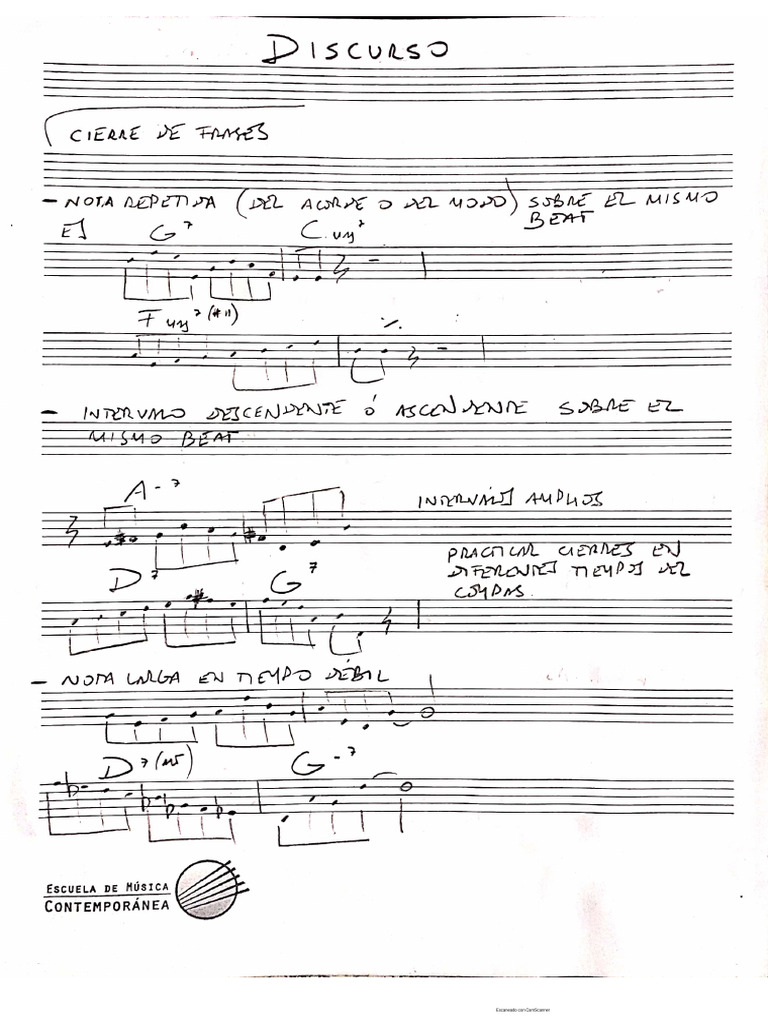 DISCURSO
CIERRE DE FRASES
- NOTA REPETIDA (DEL ACORDE O DEL MODO) SOBRE EL MISMO
BEAT
EJ G7 Cmaj7
Fmaj7(#11) ٪
- INTERVALO DESCENDENTE Ó ASCENDENTE SOBRE EL
MISMO BEAT
A-7
INTERVALOS AMPLIOS
PRACTICAR CIERRES EN
DIFERENTES TIEMPOS DEL
COMPAS.
D7 G7
- NOTA LARGA EN TIEMPO DÉBIL
D7 G-7
ESCUELA DE MÚSICA
CONTEMPORÁNEA
Escaneado con CamScanner